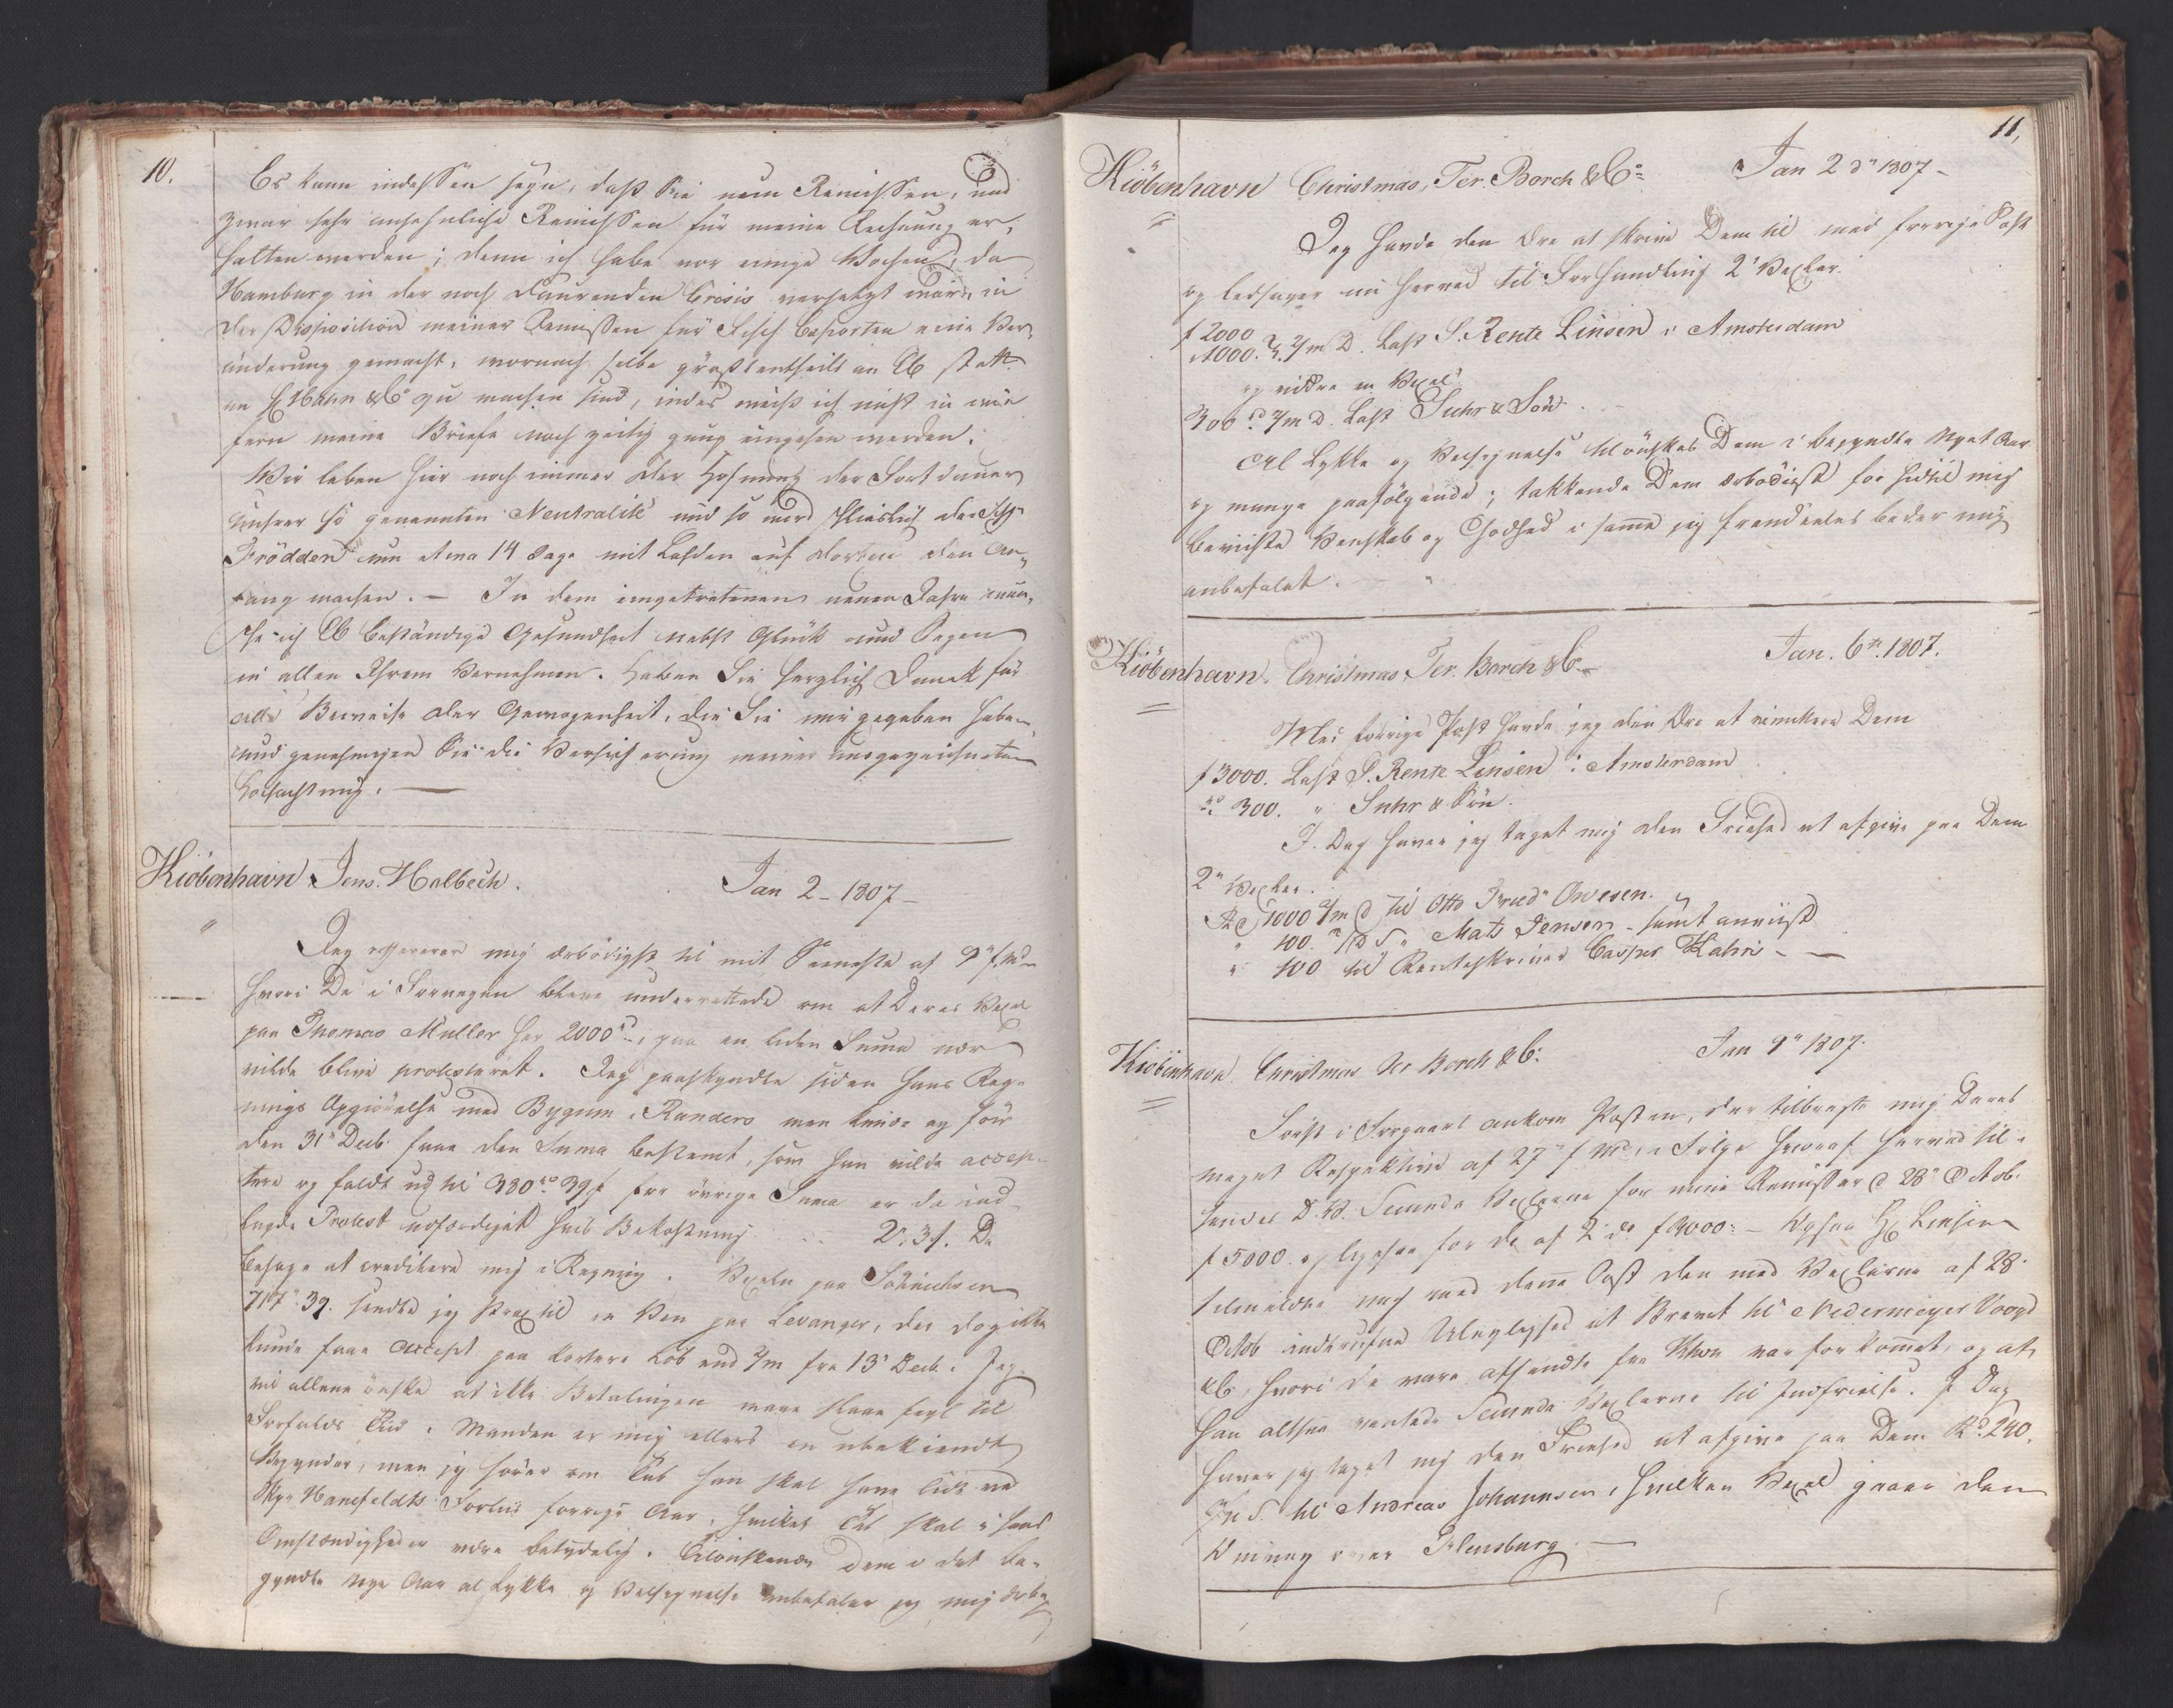 10.
Es kann indessen seyn, daß Sie nun Remissen, und
zwar sehr ansehnliche Remissen für meine Rechnung er,
halten werden; denn ich habe vor einige Wochen, da
Hamburg in der noch daurenden Crisis versetzt war, in
der Disposition meiner Remissen für Fisch Exporten eine Ver,
änderung gemacht, wornach selbe größtentheils an Eb statt
an H Hahn & Co zu machen sind, indes weiß ich nicht in wie
fern meine Briefe noch zeitig genug eingehen werden.
Wir leben hier noch immer der Hofnung der Fortdauer
unsrer so genannten Neutralité und so wird schlieslich der
Frödden um etwa 14 Tage mit Laden auf dorten den An,
fang machen. — In dem eingetretenen neuen Jahre wün,
sche ich Eb beständige Gesundheit nebst Glük und Segen
in allen Ihrem Vernehmen. Haben Sie herzlich Dank für
alle Beweise der Gewogenheit, die Sie mir gegeben haben
und genehmigen Sie die Versicherung meiner ausgezeichneten
Hochachtung. —
Kiöbenhavn Jens Holbech. Jan 2 - 1807 -
Jeg refererer mig ærbödigst til mit Seneste af 9" f. M.
hvori De i Forveyen bleve underrettede om at Deres Vexel
paa Thomas Müller her 2000 rd, paa en liden Suma nær
vilde blive protesteret. Jeg paaskyndte siden hans Reg-
nings Opgiörelse med Bygum i Randers men kunde ey för
den 31" Decb. faae den Suma bestemt, som han vilde accep-
tere og faldt ud til 380 rd 39 s for övrige Suma er da ind-
lagde Protest udfærdiget hvis Bekostning 2. 31. De
behage at creditere mig i Regning. Vexeln paa
717" 39. sendte jeg strax til en Ven paa Levanger, der dog ikke
kunde faae Accept paa kortere Löb end 2/m fra 13" Decb. Jeg
vil allene önske at ikke Betalingen maae slaae feyl til
Forfalds Tid. Manden er mig ellers en ubekiendt
Begynder, men jeg hörer om Tab han skal have lidt ved
Hanefeldts Forliis forrige Aar, hvilket Tab skal i hans
Omstændigheder være betydelig. Tilönskende Dem i det be-
gyndte nye Aar al Lykke og Velsignelse anbefaler jeg mig
11,
Kiöbenhavn Christmas, Ter. Borch & Co Jan 2 d" 1807 -
Jeg havde den Ære at skrive Dem til med forrige Post
og ledsager nu herved til Forhandling 2 Vexler.
f 2000
1000. 2/m D. Last S. Rente Linsen i Amsterdam
og videre en Vexel
300 rd 2/m D. Last Suhr & Sön.
Al Lykke og Velsignelse tilönskes Dem i begyndte Nyet Aar
og mange paafölgende; takkende Dem ærbödigst for hidtil mig
beviiste Venskab og Godhed i samme jeg fremdeeles beder mig
anbefalet.
Kiöbenhavn. Christmas, Ter. Borch & Co Jan. 6 te. 1807.
Med forrige Post havde jeg den Ære at remittere Dem
f 3000. Last S. Rente Linsen i Amsterdam
rd 300. " Suhr & Sön.
I Dag haver jeg taget mig den Friehed at afgive paa Dem
2" Vexler.
Rd 1000 2/m d til Otto Fried" Owesen.
" 100. " Mats Jensen - samt anviist
" 100 til Renteskriver Casper Hahn - —
Kiöbenhavn. Christmas Ter Borch & Co: Jan 9" 1807.
Först i Forgaars ankom Posten, der tilbragte mig Deres
meget Respektive af 27" f. M., i Fölge hvoraf herved til-
sendes D. H. Secunda Vexlerne for mine Remisser d 28" Octob.
f 5000. og ligesaa for de af 2 de f 3000. — Ogsaa Hr Linsen
tilmeldte mig med denne Post den med Vexlerne af 28.
Octob indtrufne Uleylighed at Brevet til Nedermeyer Voogd
& Co, hvori de vare afsendte fra Khvn var forkommet, og at
han altsaa ventede Secunda Vexlerne til Indfrielse. I Dag
haver jeg taget mig den Friehed at afgive paa Dem Rd. 240.
til Andreas Johannsen, hvilken Vexel gaaer den
over Flensburg. —